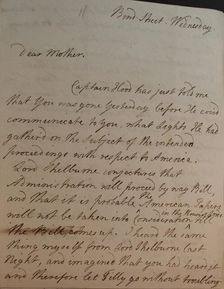 Bond Street. Wednesday
Dear Mother,
Captain Hood has just told me
that You was gone Yesterday before He could
communicate to You, what Lights He had
gatherd on the Subject of the intended
proceedings with respect to America.
Lord Shelburne conjectures that
Administration will proceed by way Bill,
and that it is probable the American Papers
will not be taken into Consideration
in the House till
the Bill comes up. I heard the same
thing myself from Lord Shelburne last
Night, and imagined that you had heard it
and therefore let go without